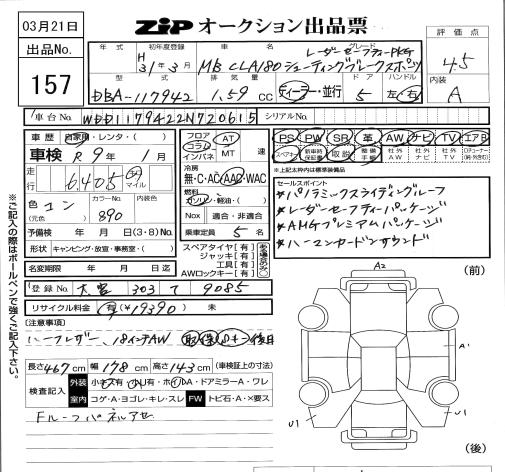 03月21日
ZIP オークション出品票
出品No.
157
年式 初年度登録 車名 グレード
H31年3月 MB CLA180 シューティングブレークスポーツ
レーダーセーフティーPKG
評価点
4.5
内装
A
型式 排気量 ドア ハンドル
DBA-117942 1.59 cc ディーラー・並行 5 左・右
車台No. WDD1179422N720615 シリアルNo.
車歴 自家用・レンタ・( )
車検 R 9年 1月
走行 6,405 km マイル
色 (元色) コン カラーNo. 890 内装色
予備検 年 月 日(3・8)No.
形状 キャンピング・放宣・事務室・( )
名変期限 年 月 日迄
登録No. 303 て 9085
リサイクル料金 有(¥19390) 未
フロア コラム インパネ AT MT 速
冷房 無・C・AC・AAC・WAC
燃料 ガソリン・軽油・( )
Nox 適合・非適合
乗車定員 5 名
スペアタイヤ[有]
ジャッキ[有]
工具[有]
AWロックキー[有]
ある場合のみ
PS PW SR 革 AW ナビ TV エアB
スペアキー 新車時保証書 取説 整備手帳 社外AW 社外ナビ 社外TV
※上記記本枠内は該当装備
セールスポイント
*パノラミックスライディングルーフ
*レーダーセーフティーパッケージ
*AMGプレミアムパッケージ
*ハーマンカードンサウンド
[注意事項]
ハーフレザー、18インチAW 取保 後日
長さ467cm 幅178cm 高さ143cm (車検証上の寸法)
検査記入 外装 小キズ有・小凹有・ホイDA・ドアミラーA・ワレ
室内 コゲ・A・ヨゴレ・キレ・スレ FW トビ石・A・×要ス
Fルーフパネルアセ
A2
(前)
A1
U1
U1
(後)
※ご記入の際はボールペンで強くご記入下さい。